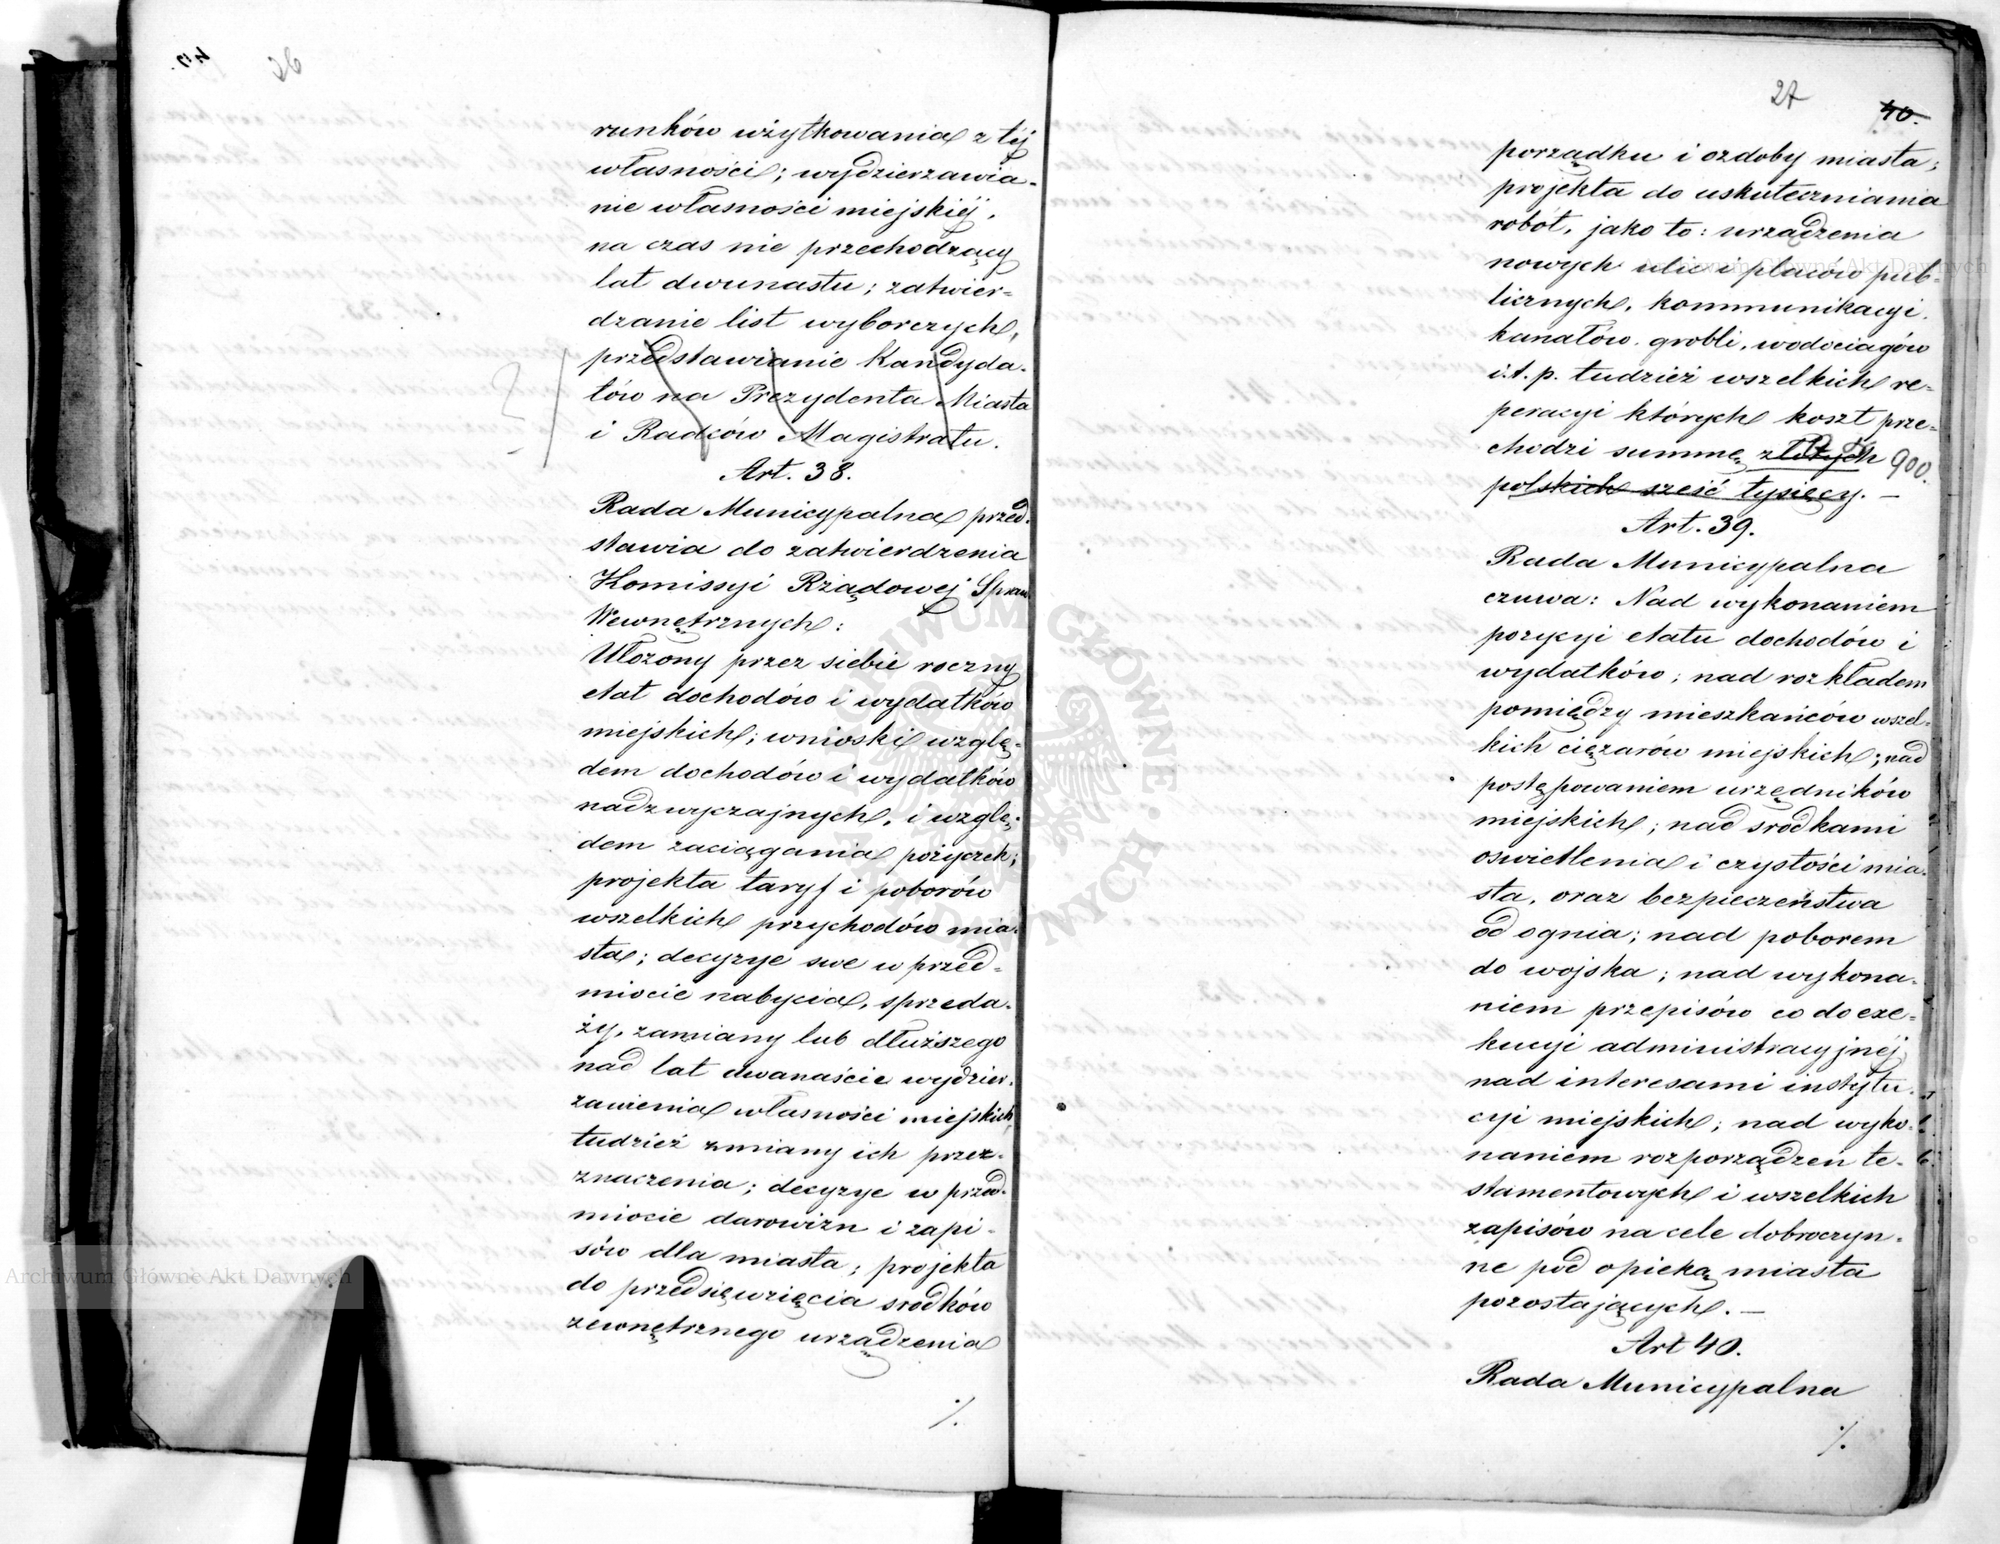 runków użytkowania z téj
własności; wydzierzawia-
nie własności miejskiéj,
na czas nie przechodzący
lat dwunastu; zatwier-
dzanie list wyborczych,
przedstawianie Kandyda-
tów na Prezydenta Miasta
i Radców Magistratu.
Art. 38.
Rada Municypalna przed-
stawia do zatwierdzenia
Komissyi Rządowej Spraw
Wewnętrznych:
Ułożony przez siebie roczny
etat dochodów i wydatków
miejskich; wnioski wzglę-
dem dochodów i wydatków
nadzwyczajnych, i wzglę-
dem zaciągania pożyczek;
projekta taryf i poborów
wszelkich przychodów mia-
sta; decyzye swe w przed-
miocie nabycia, sprzeda-
ży, zamiany lub dłuższego
nad lat dwanaście wydzier-
zawienia własności miejskich,
tudzież zmiany ich prze-
znaczenia; decyzye w przed-
miocie darowizn i zapi-
sów dla miasta; projekta
do przedsięwzięcia srodków
zewnętrznego urządzenia
./.
27 40.
porządku i ozdoby miasta;
projekta do uskuteczniania
robót, jako to: urządzenia
nowych ulic i placów pub-
licznych, kommunikacyi,
kanałów, grobli, wodociągów
i.t.p. tudzież wszelkich re-
peracyi których koszt prze-
chodzi summę złotych 900.
polskich sześć tysięcy. —
Art. 39.
Rada Municypalna
czuwa: Nad wykonaniem
pozycyi etatu dochodów i
wydatków; nad rozkładem
pomiędzy mieszkańców wszel-
kich ciężarów miejskich; nad
postępowaniem urzędników
miejskich; nad srodkami
oswietlenia i czystości mia-
sta, oraz bezpieczeństwa
od ognia; nad poborem
do wojska; nad wykona-
niem przepisów co do exe-
kucyi administracyjnéj,
nad interesami instytu-
cyi miejskich; nad wyko-
naniem rozporządzeń te-
stamentowych i wszelkich
zapisów na cele dobroczyn-
ne pod opieką miasta
pozostających. —
Art 40.
Rada Municypalna
./.
Archiwum Główne Akt Dawnych
Archiwum Główne Akt Dawnych
ARCHIWUM GŁÓWNE AKT DAWNYCH